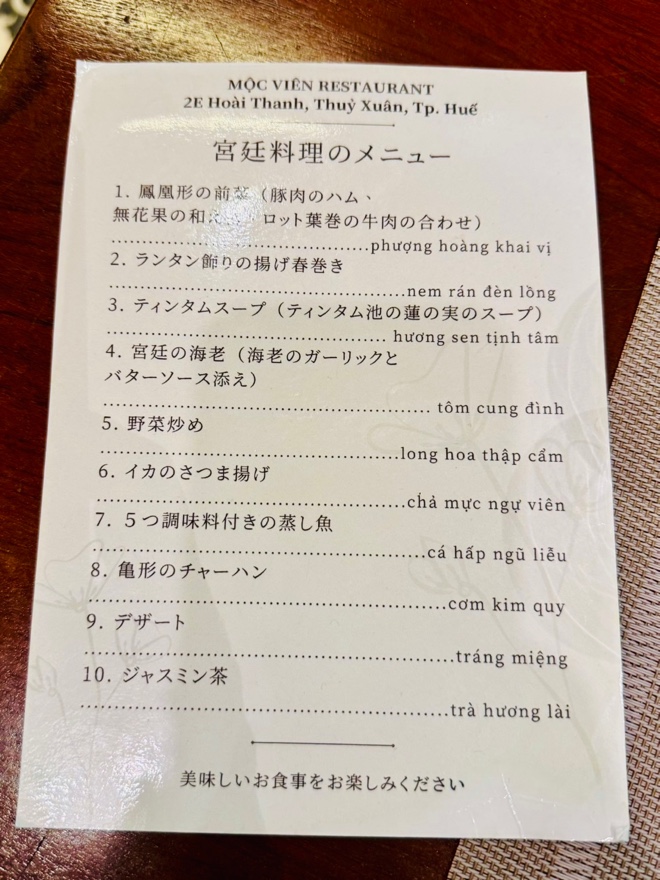 MỘC VIÊN RESTAURANT
2E Hoài Thanh, Thuỷ Xuân, Tp. Huế
宮廷料理のメニュー
1. 鳳凰形の前菜（豚肉のハム、
無花果の和え ロット葉巻の牛肉の合わせ）
phượng hoàng khai vị
2. ランタン飾りの揚げ春巻き
nem rán đèn lồng
3. ティンタムスープ（ティンタム池の蓮の実のスープ）
hương sen tịnh tâm
4. 宮廷の海老（海老のガーリックと
バターソース添え）
tôm cung đình
5. 野菜炒め
long hoa thập cẩm
6. イカのさつま揚げ
chả mực ngự viên
7. ５つ調味料付きの蒸し魚
cá hấp ngũ liễu
8. 亀形のチャーハン
cơm kim quy
9. デザート
tráng miệng
10. ジャスミン茶
trà hương lài
美味しいお食事をお楽しみください